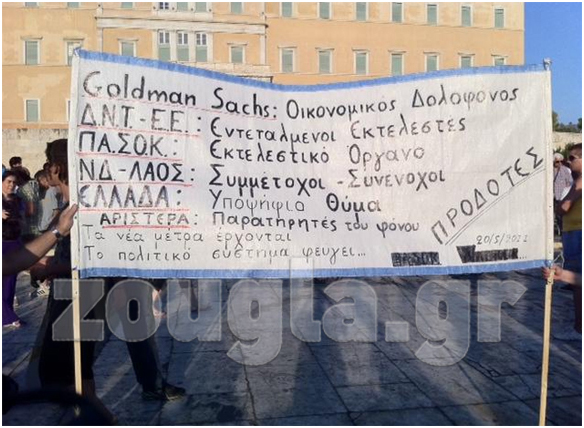 Goldman Sachs: Οικονομικος Δολοφονος
Δ.Ν.Τ-Ε.Ε.: Εντεταλμενοι Εκτελεστες
ΠΑ.ΣΟΚ.: Εκτελεστικό Όργανο
ΝΔ-ΛΑΟΣ: Συμμέτοχοι-Συνένοχοι
ΕΛΛΑΔΑ: Υποψήφιο Θύμα
ΑΡΙΣΤΕΡΑ: Παρατηρητές του φόνου
ΠΡΟΔΟΤΕΣ
Τα νέα μέτρα έρχονται
20/5/2011
Το πολιτικό σύστημα φευγει...
zougla.gr